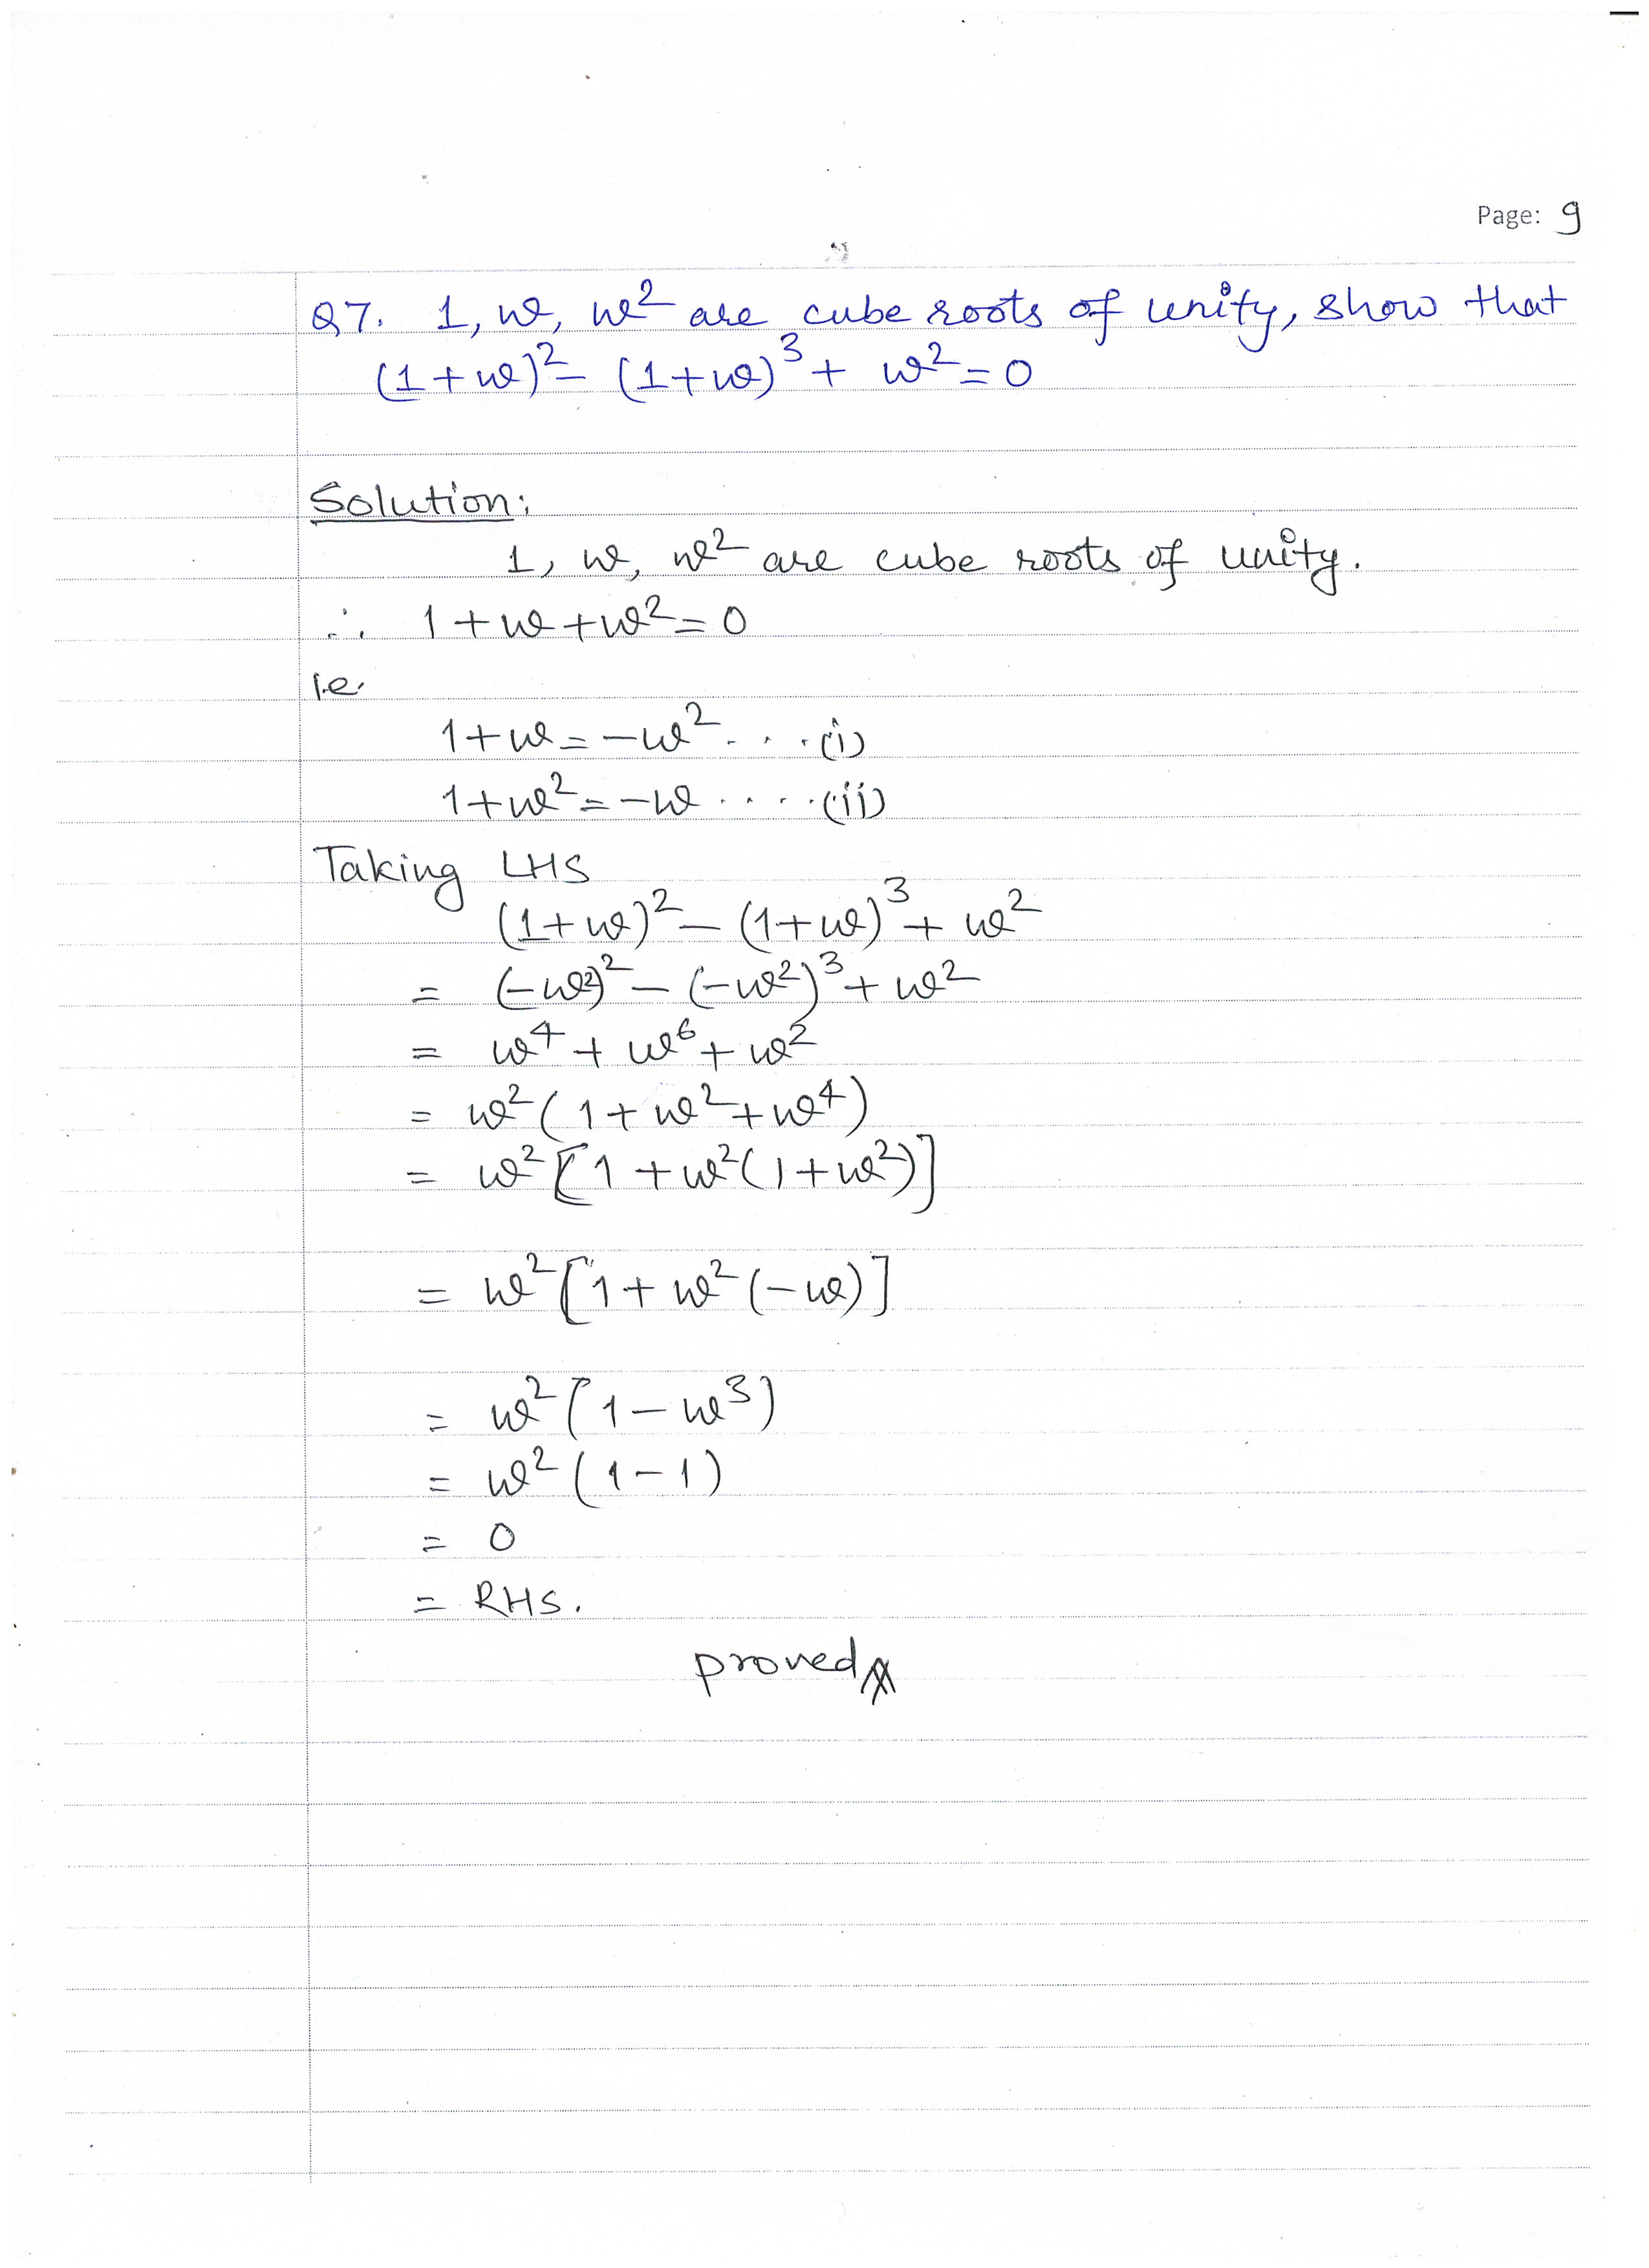 Page: 9
Q7. 1, ω, ω² are cube roots of unity, show that
(1+ω)² – (1+ω)³ + ω² = 0
Solution:
1, ω, ω² are cube roots of unity.
∴ 1+ω+ω² = 0
i.e.
1+ω = –ω² . . . (i)
1+ω² = –ω . . . . . (ii)
Taking LHS
(1+ω)² – (1+ω)³ + ω²
= (–ω²)² – (–ω²)³ + ω²
= ω⁴ + ω⁶ + ω²
= ω² (1+ω²+ω⁴)
= ω² [1+ω²(1+ω²)]
= ω² [1+ω² (–ω)]
= ω² (1–ω³)
= ω² (1–1)
= 0
= RHS.
proved